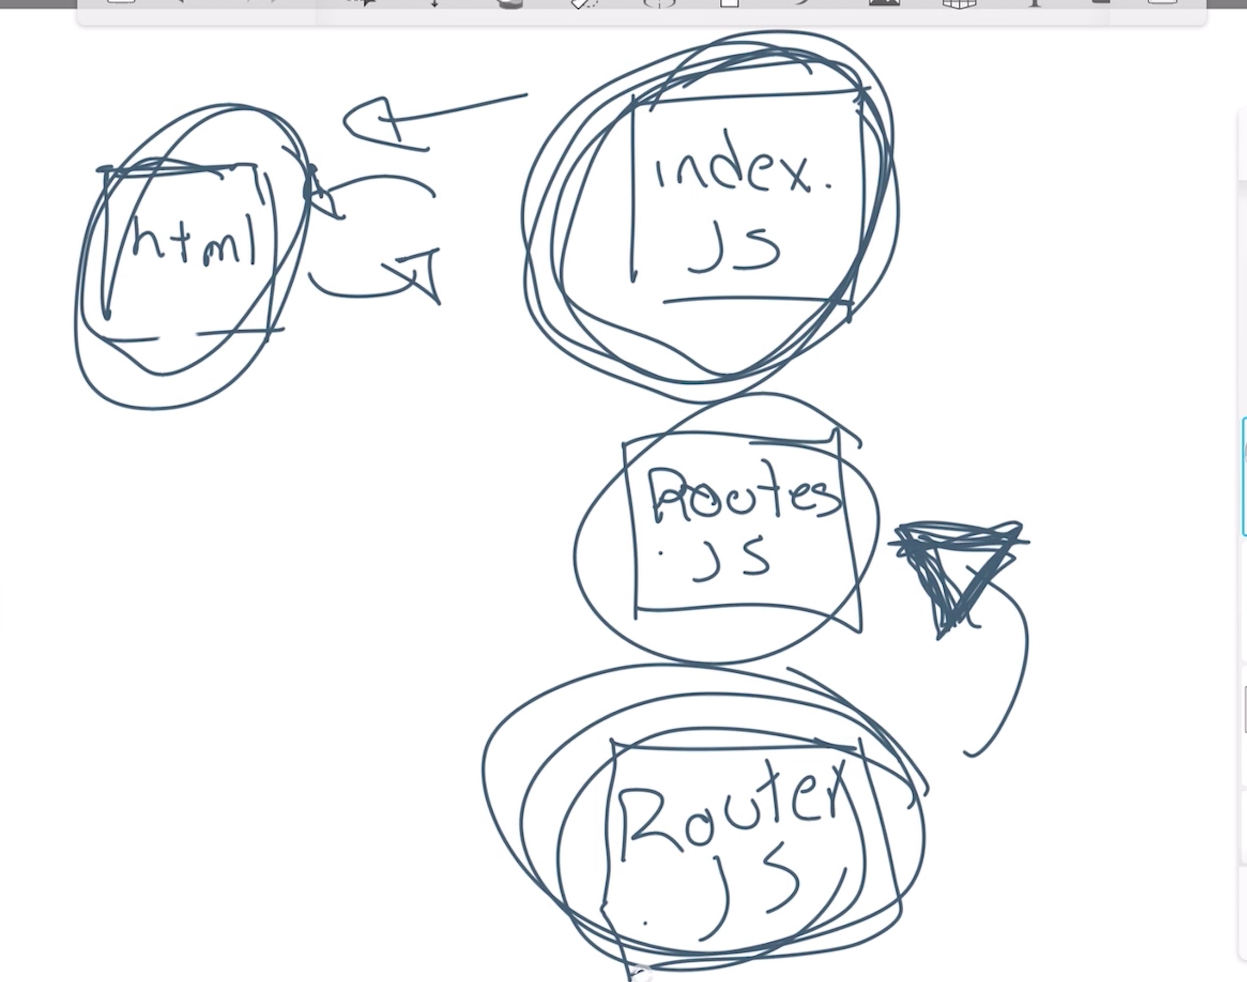 html
index.
JS
Routes
.JS
Router
.JS